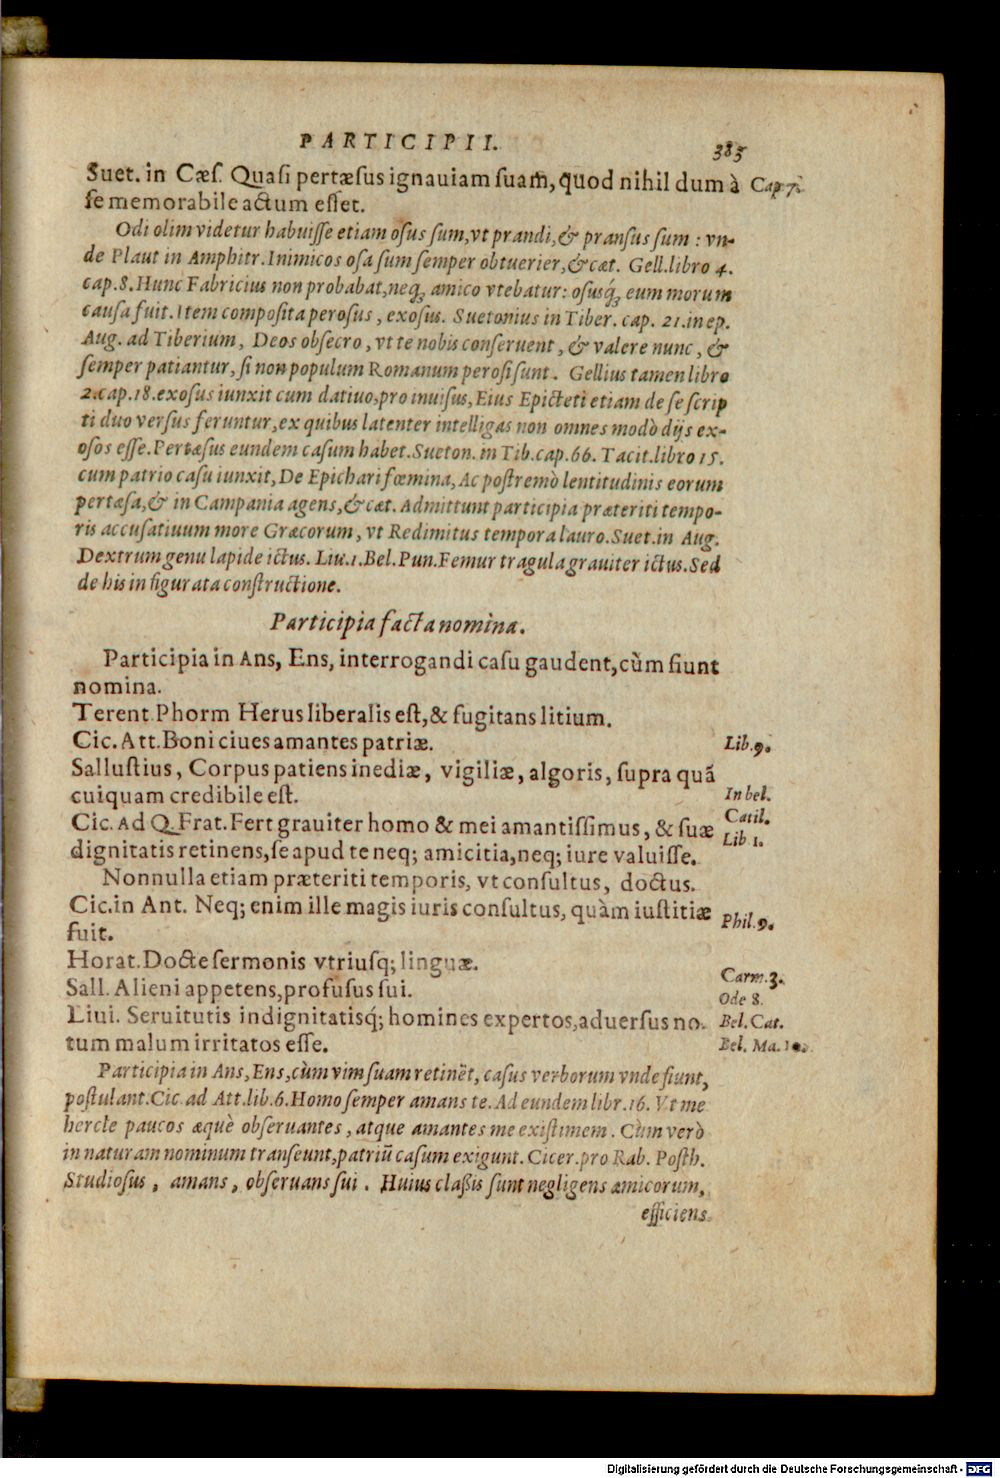 PARTICIPII. 385
Suet. in Cæs. Quasi pertæsus ignauiam suam̃, quod nihil dum à Cap. 7.
se memorabile actum esset.
Odi olim videtur habuisse etiam osus sum, vt prandi, & pransus sum : vn-
de Plaut in Amphitr. Inimicos osa sum semper obtuerier, & cæt. Gell. libro 4.
cap. 8. Hunc Fabricius non probabat, neq; amico vtebatur: osusq́; eum morum
causa fuit. Item composita perosus, exosus. Suetonius in Tiber. cap. 21. in ep.
Aug. ad Tiberium, Deos obsecro, vt te nobis conseruent, & valere nunc, &
semper patiantur, si non populum Romanum perosi sunt. Gellius tamen libro
2. cap. 18. exosus iunxit cum datiuo, pro inuisus, Eius Epicteti etiam de se scrip
ti duo versus feruntur, ex quibus latenter intelligas non omnes modò dijs ex-
osos esse. Pertæsus eundem casum habet. Sueton. in Tib. cap. 66. Tacit. libro 15.
cum patrio casu iunxit, De Epichari fœmina, Ac postremò lentitudinis eorum
pertæsa, & in Campania agens, & cæt. Admittunt participia præteriti tempo-
ris accusatiuum more Græcorum, vt Redimitus tempora lauro. Suet. in Aug.
Dextrum genu lapide ictus. Liu. 1. Bel. Pun. Femur tragula grauiter ictus. Sed
de his in figurata constructione.
Participia facta nomina.
Participia in Ans, Ens, interrogandi casu gaudent, cùm fiunt
nomina.
Terent. Phorm Herus liberalis est, & fugitans litium.
Cic. Att. Boni ciues amantes patriæ. Lib. 9.
Sallustius, Corpus patiens inediæ, vigiliæ, algoris, supra quã
cuiquam credibile est. In bel.
Catil.
Cic. Ad Q. Frat. Fert grauiter homo & mei amantissimus, & suæ
Lib 1.
dignitatis retinens, se apud te neq; amicitia, neq; iure valuisse.
Nonnulla etiam præteriti temporis, vt consultus, doctus.
Cic. in Ant. Neq; enim ille magis iuris consultus, quàm iustitiæ Phil. 9.
fuit.
Horat. Docte sermonis vtriusq; linguæ. Carm. 3.
Ode 8.
Sall. Alieni appetens, profusus sui.
Liui. Seruitutis indignitatisq́; homines expertos, aduersus no- Bel. Cat.
tum malum irritatos esse. Bel. Ma. 10.
Participia in Ans, Ens, cùm vim suam retinẽt, casus verborum vnde fiunt,
postulant. Cic. ad Att. lib. 6. Homo semper amans te. Ad eundem libr. 16. Vt me
hercle paucos æquè obseruantes, atque amantes me existimem. Cùm verò
in naturam nominum transeunt, patriũ casum exigunt. Cicer. pro Rab. Posth.
Studiosus, amans, obseruans sui. Huius classis sunt negligens amicorum,
efficiens
Digitalisierung gefördert durch die Deutsche Forschungsgemeinschaft - DFG